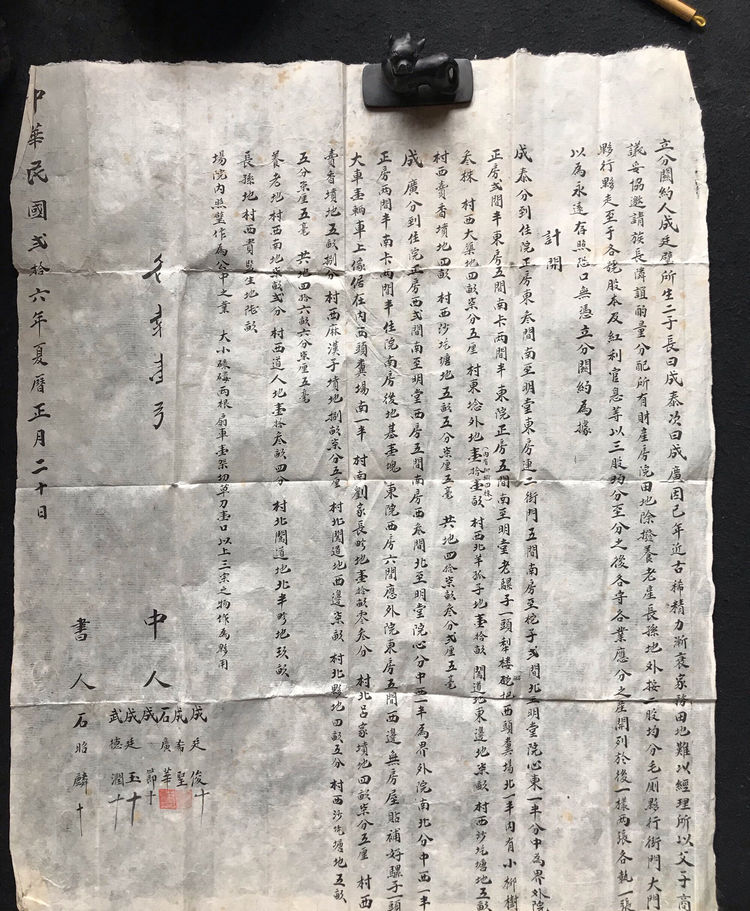 立分關約人成廷璧所生二子長曰成泰次曰成廣因己年近古稀精力漸衰家務田地難以經理所以父子商
議妥協邀請族長隣誼酌量分配所有財產房院田地除撥養老產長孫地外按二股均分毛厠夥行街門大門
夥行夥走至于各號股本及紅利官息等以三股均分至分之後各守各業應分之產開列於後一樣兩張各執一張
以為永遠存照恐口無憑立分關約為據
計開
成泰分到住院正房東叁間南至明堂東房連二街門五間南房至梔子弍間北至明堂院心東一半分中為界外院
正房弍間半東房五間南卡兩間半東院正房五間南至明堂老騾子一頭犁耬砲地西頭糞場北一半內有小柳樹
叁株 村西大渠地四畝柒分五厘 村東埝外地壹拾壹畝 村西北羊孤子地壹拾畝 閣道地東邊地柒畝 村西沙圪塘地五
村西賣香墳地四畝 村西沙圪塘地五畝五分柒厘五毫 共地四拾柒畝叁分弍厘五毫
成廣分到住院正房西弍間南至明堂西房五間南房西叁間北至明堂院心分中西一半為界外院南北分中西一半
正房兩間半南卡兩間半住院南房後地基壹塊 東院西房六間應外院東房五間西邊無房屋貼補好騾子一頭
大車壹輛車上傢俱在內西頭糞場南一半 村南劉家長畛地壹拾畝零叁分 村北呂家墳地四畝柒分五厘 村西
賣香墳地五畝捌分 村西麻漢子墳地捌畝柒分五厘 村北閣道地西邊柒畝 村北夥地四畝五分 村西沙圪塘地五畝
五分柒厘五毫 共地四拾六畝六分柒厘五毫
養老地村西南地柒畝弍分 村西道人地壹拾叁畝四分 村北閣道地北半畛地玖畝
長孫地村西賣地陸畝
場院內照壁作為公中之業 大小碌碡兩根扇車壹架切草刀壹口以上三宗之物作為夥用
中人
成廷俊十
成香聖
石廣華
成節十
成廷玉十
武德潤十
書人石昭麟十
中華民國弍拾六年夏曆正月二十日